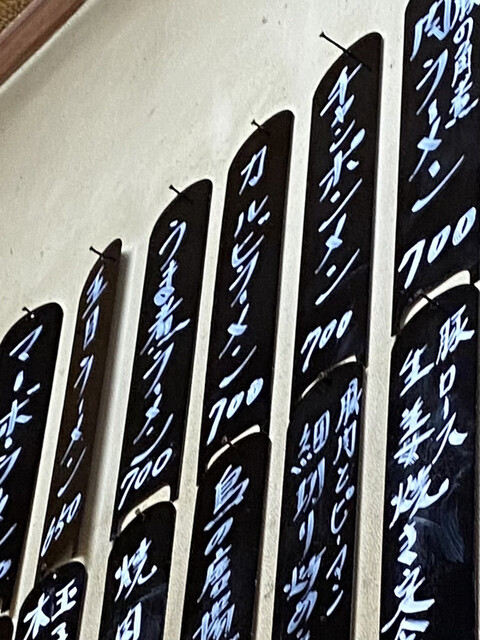 豚の角煮
肉ラーメン
700
チャンポンメン
700
カルビラーメン
700
うま煮ラーメン
700
ラーメン
650
マーボーラーメン
豚ロース
生姜焼き定
豚肉とピーマン
細切り炒め
鳥の唐揚
焼肉
玉